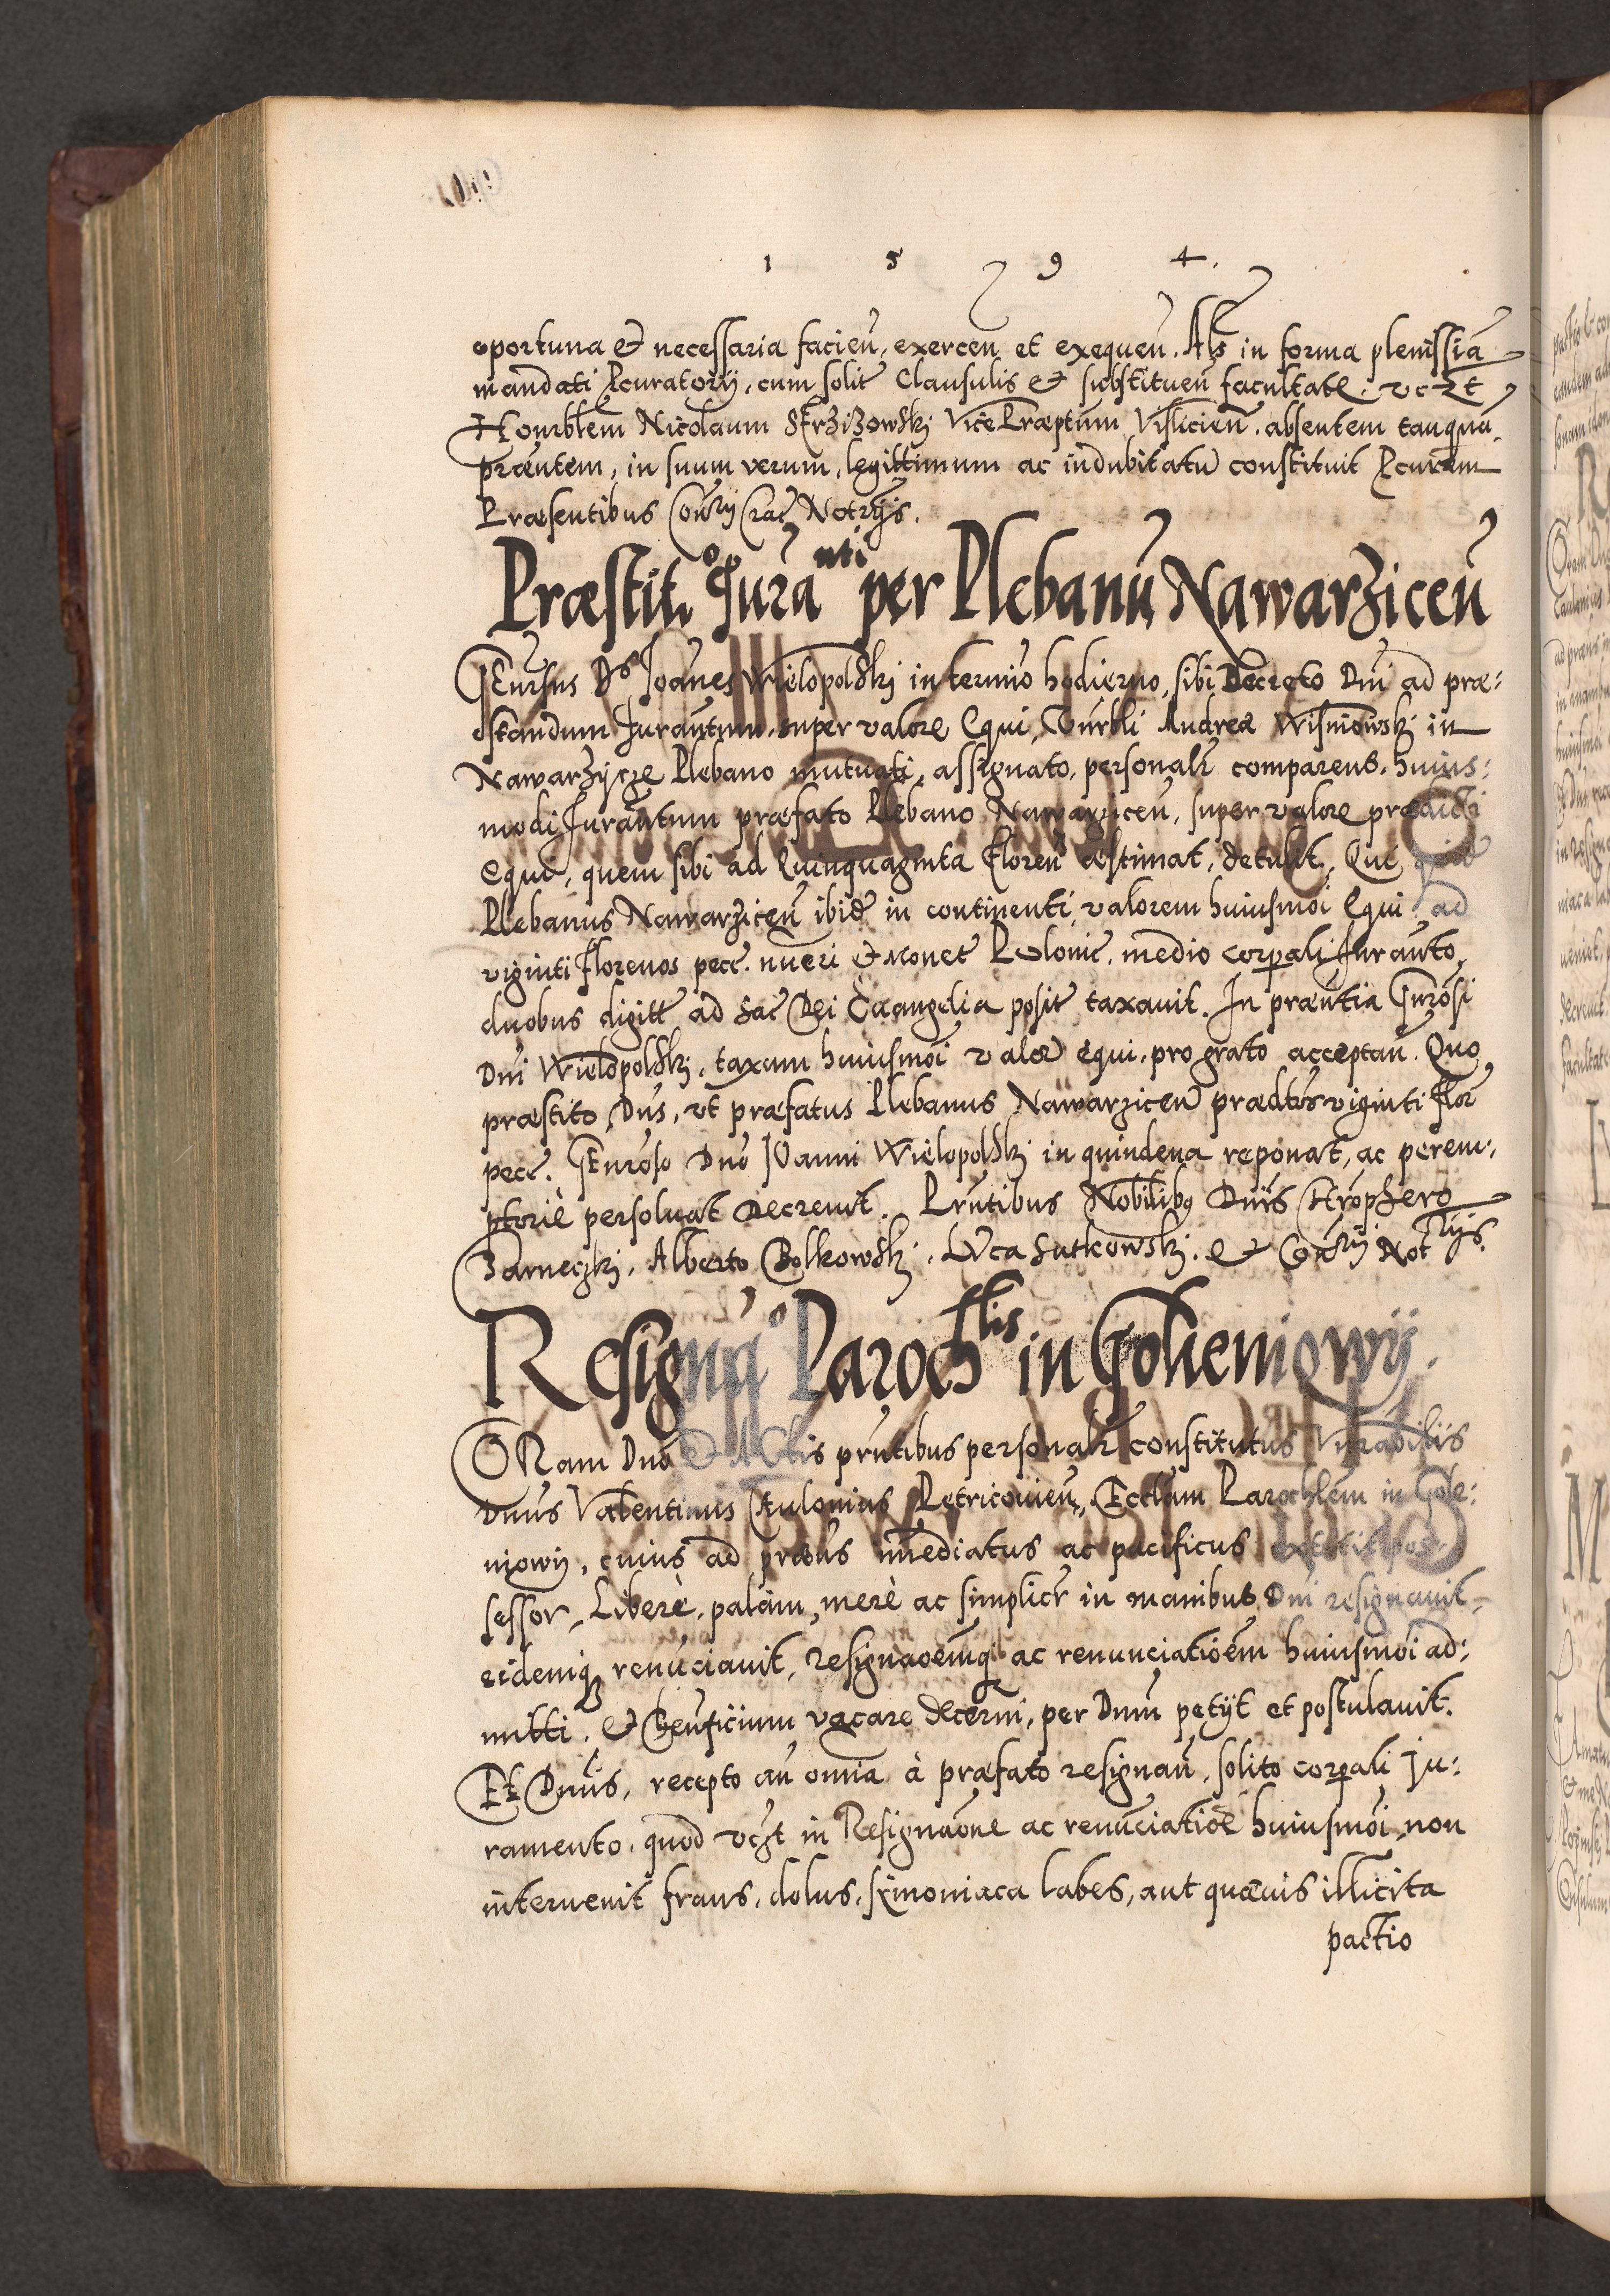 1 5 9 4.
oportuna et necessaria facieñ, exerceñ et exequeñ. Als in forma plenissiã
mandati Pcuratorij, cum solit Clausulis et substitueñ facultate. vczt
Honrblem Nicolaum Strzizowskj Vice Præptum Vislicieñ. absentem tanquã
præntem, in suum verum, legittimum ac indubitatũ constituit Pcurem
PræsentibusConrij Crac Notrijs.
Præstit.º Jurãnti per Plebanũ Nawarziceñ
GEnrsus Ds Joãnes Wielopolskj in termio hodierno, sibi Decreto Dni ad præ:
standum Jurantum, super valore Equi, Vnrbli Andreæ Wisniowskj in
Nawarzycze Plebano mutuati, assignato, personalr comparens. huius:
modi Jurãntum præfato Plebano Nawarziceñ, super valore prædicti
Equi, quem sibi ad Quinquaginta Floreñ æstimat, detulit. Qui quid
Plebanus Nawarziceñ ibid in continenti, valorem huiusmoi Equi ad
viginti Florenos pecc. nueri et monet Polonic. medio corpali Jurãnto,
duobus digitt ad Sac Dei Euangelia posit taxauit. In præntia Gnrosi
Dni Wielopolskj, taxam huiusmoi valor equi, pro grato acceptañ. Quo
præstito, Dns, vt præfatus Plebanus Nawarziceñ prædtos viginti flor
pecc. GEnroso Dno JOanni Wielopolskj in quindena reponat, ac perem:
ptoriè persoluat Decreuit. Prntibus Nobilibq Dnis Chrophero
Zarneczkj, Alberto Bolkowskj, LVca Sutkowskj. et Conrij Notrijs.
Resignãº Parochlis in Goleniowij.
CORam Dno et Actis prntibus personalr constitutus Vnrabilis
Dnus Valentinus Petricouieñ, Ecclam Parochlem in Gole:
niowij, cuius ad præns immediatus ac pacificus extitit pos:
sessor, Liberè, palàm, merè ac simplicr in manibus Dni resignauit
eidemq renũciauit, Resignaoemq ac renunciatioem huiusmoi ad:
mitti. et Benficium vacare decerni, per Dnum petijt et postulauit.
Et Dnus, recepto añ omnia à præfato resignañ, solito corpali Ju:
ramento, quod vczt in Resignaone ac renũciatioe huiusmoi, non
interuenit fraus, dolus, simoniaca labes, aut quæuis illicita
pactio